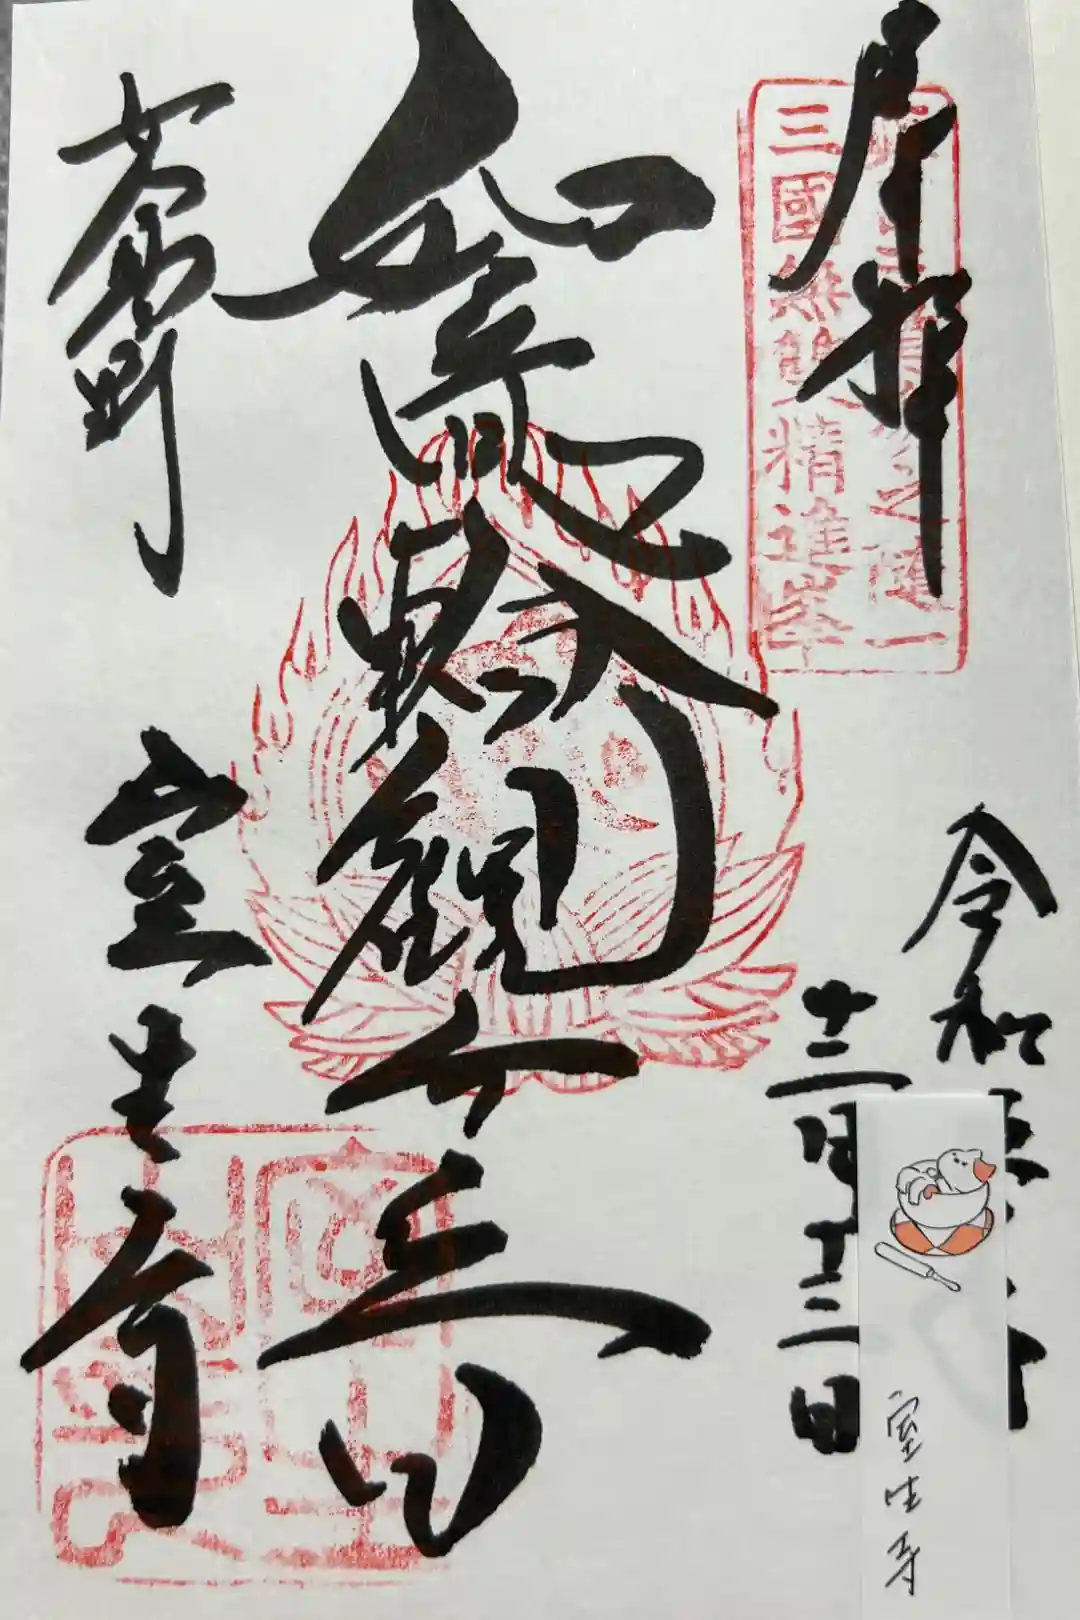 奉拝
三國無雙精進峯
令和
十二月十二日
如意輪観世音
女人高野
室生寺
室生寺